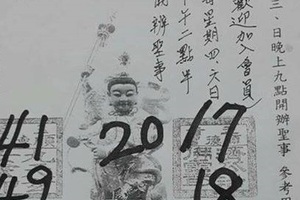 三、日晚上九點開辦聖事 參考
歡迎加入會員
星期四.六日
午二點半
辦聖事
41 20 17
49 18